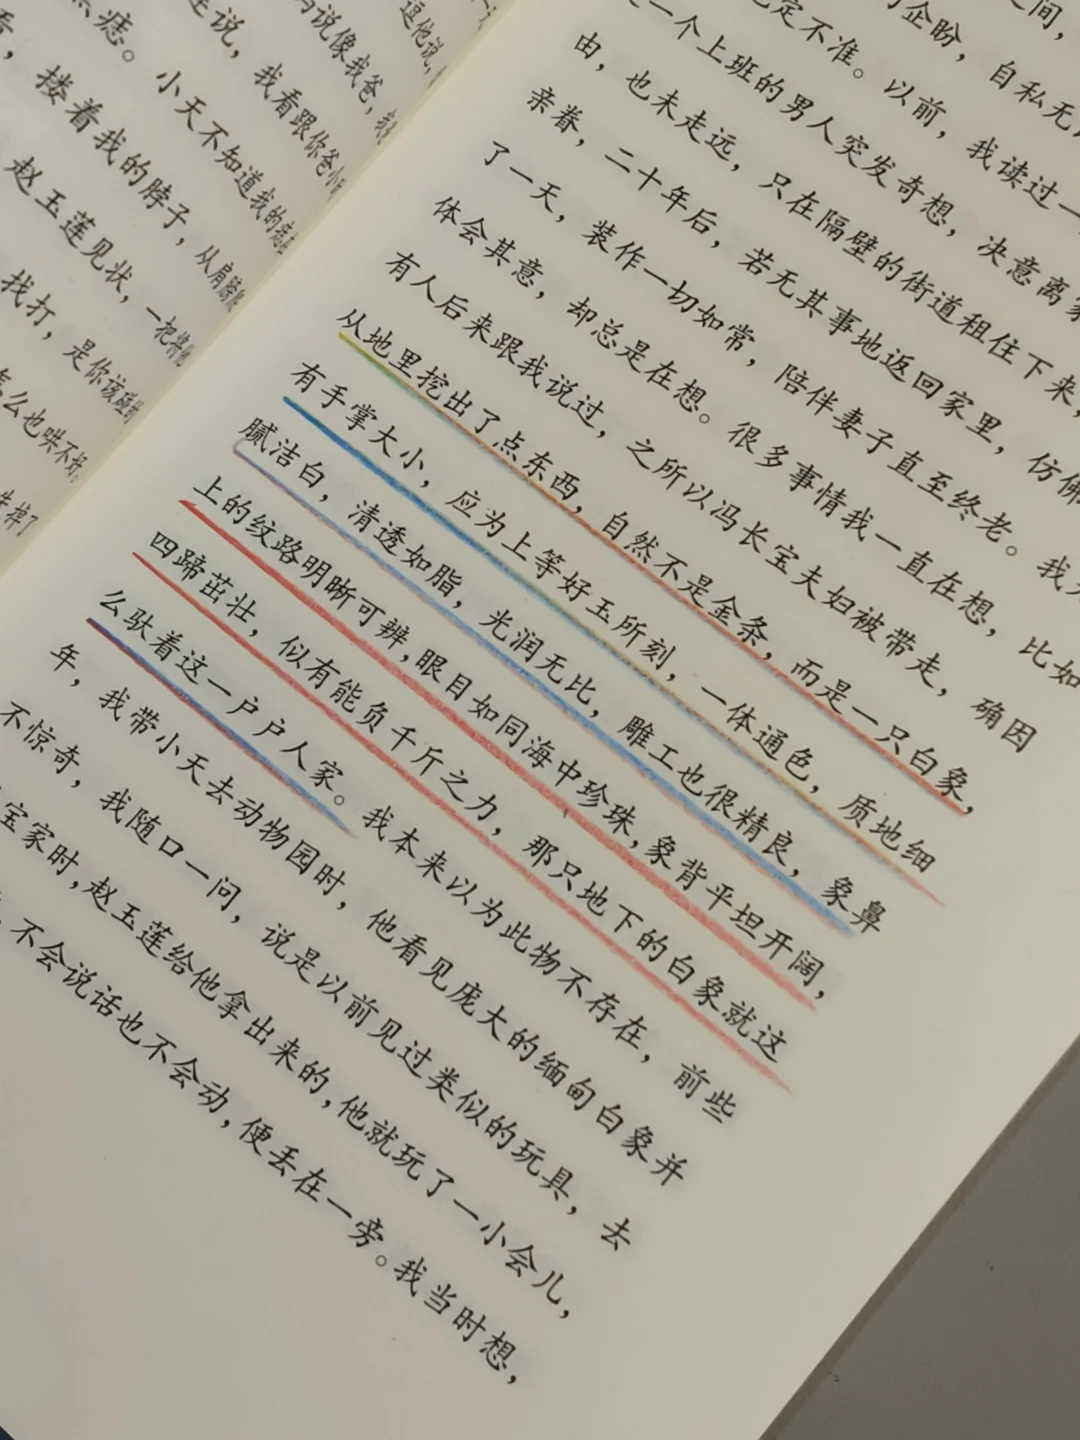 点痣。小天不知道我的
搂着我的脖子，从肩膀
赵玉莲见状，一把将他
找打，是你该碰
怎么也哄不好，
连说，我看跟你爸小
妈说像我爸，
逗他说，
之间，
的企盼，自私无
定不准。以前，我读过一
一个上班的男人突发奇想，决意离家
由，也未走远，只在隔壁的街道租住下来，
亲眷，二十年后，若无其事地返回家里，仿佛
了一天，装作一切如常，陪伴妻子直至终老。我
体会其意，却总是在想。很多事情我一直在想，比如
有人后来跟我说过，之所以冯长宝夫妇被带走，确因
从地里挖出了点东西，自然不是金条，而是一只白象，
有手掌大小，应为上等好玉所刻，一体通色，质地细
腻洁白，清透如脂，光润无比，雕工也很精良，象鼻
上的纹路明晰可辨，眼目如同海中珍珠，象背平坦开阔，
四蹄茁壮，似有能负千斤之力，那只地下的白象就这
么驮着这一户户人家。我本来以为此物不存在，前些
年，我带小天去动物园时，他看见庞大的缅甸白象并
不惊奇，我随口一问，说是以前见过类似的玩具，去
宝家时，赵玉莲给他拿出来的，他就玩了一小会儿，
不会说话也不会动，便丢在一旁。我当时想，